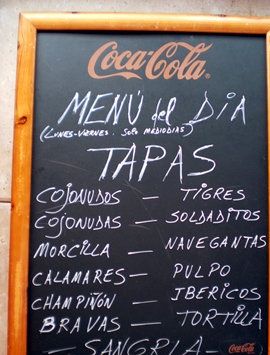 Coca-Cola
MENÚ del DIA
(LUNES-VIERNES. Solo MEDIODIAS)
TAPAS
COJONUDOS — TIGRES
COJONUDAS — SOLDADITOS
MORCILLA — NAVEGANTAS
CALAMARES — PULPO
CHAMPIÑÓN — IBERICOS
BRAVAS — TORTILLA
— SANGRIA —
Coca-Cola